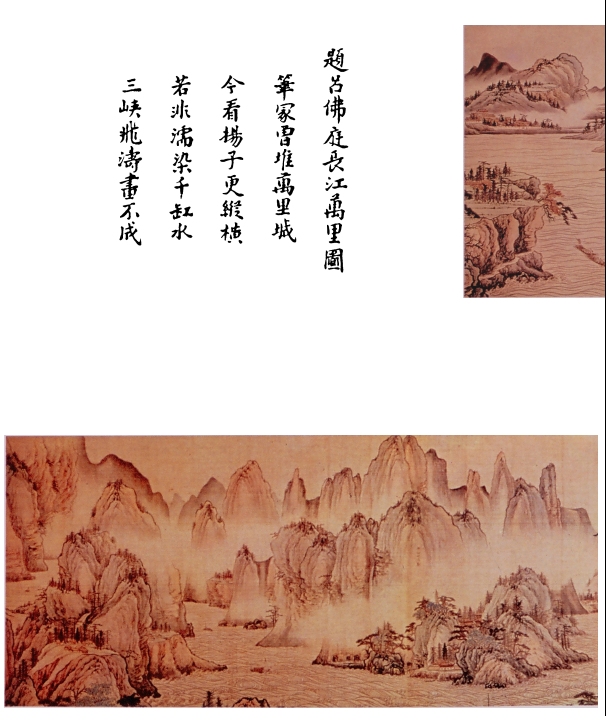 題呂佛庭長江萬里圖
筆冢曾堆萬里城
今看揚子更縱橫
若非濡染千缸水
三峽飛濤畫不成